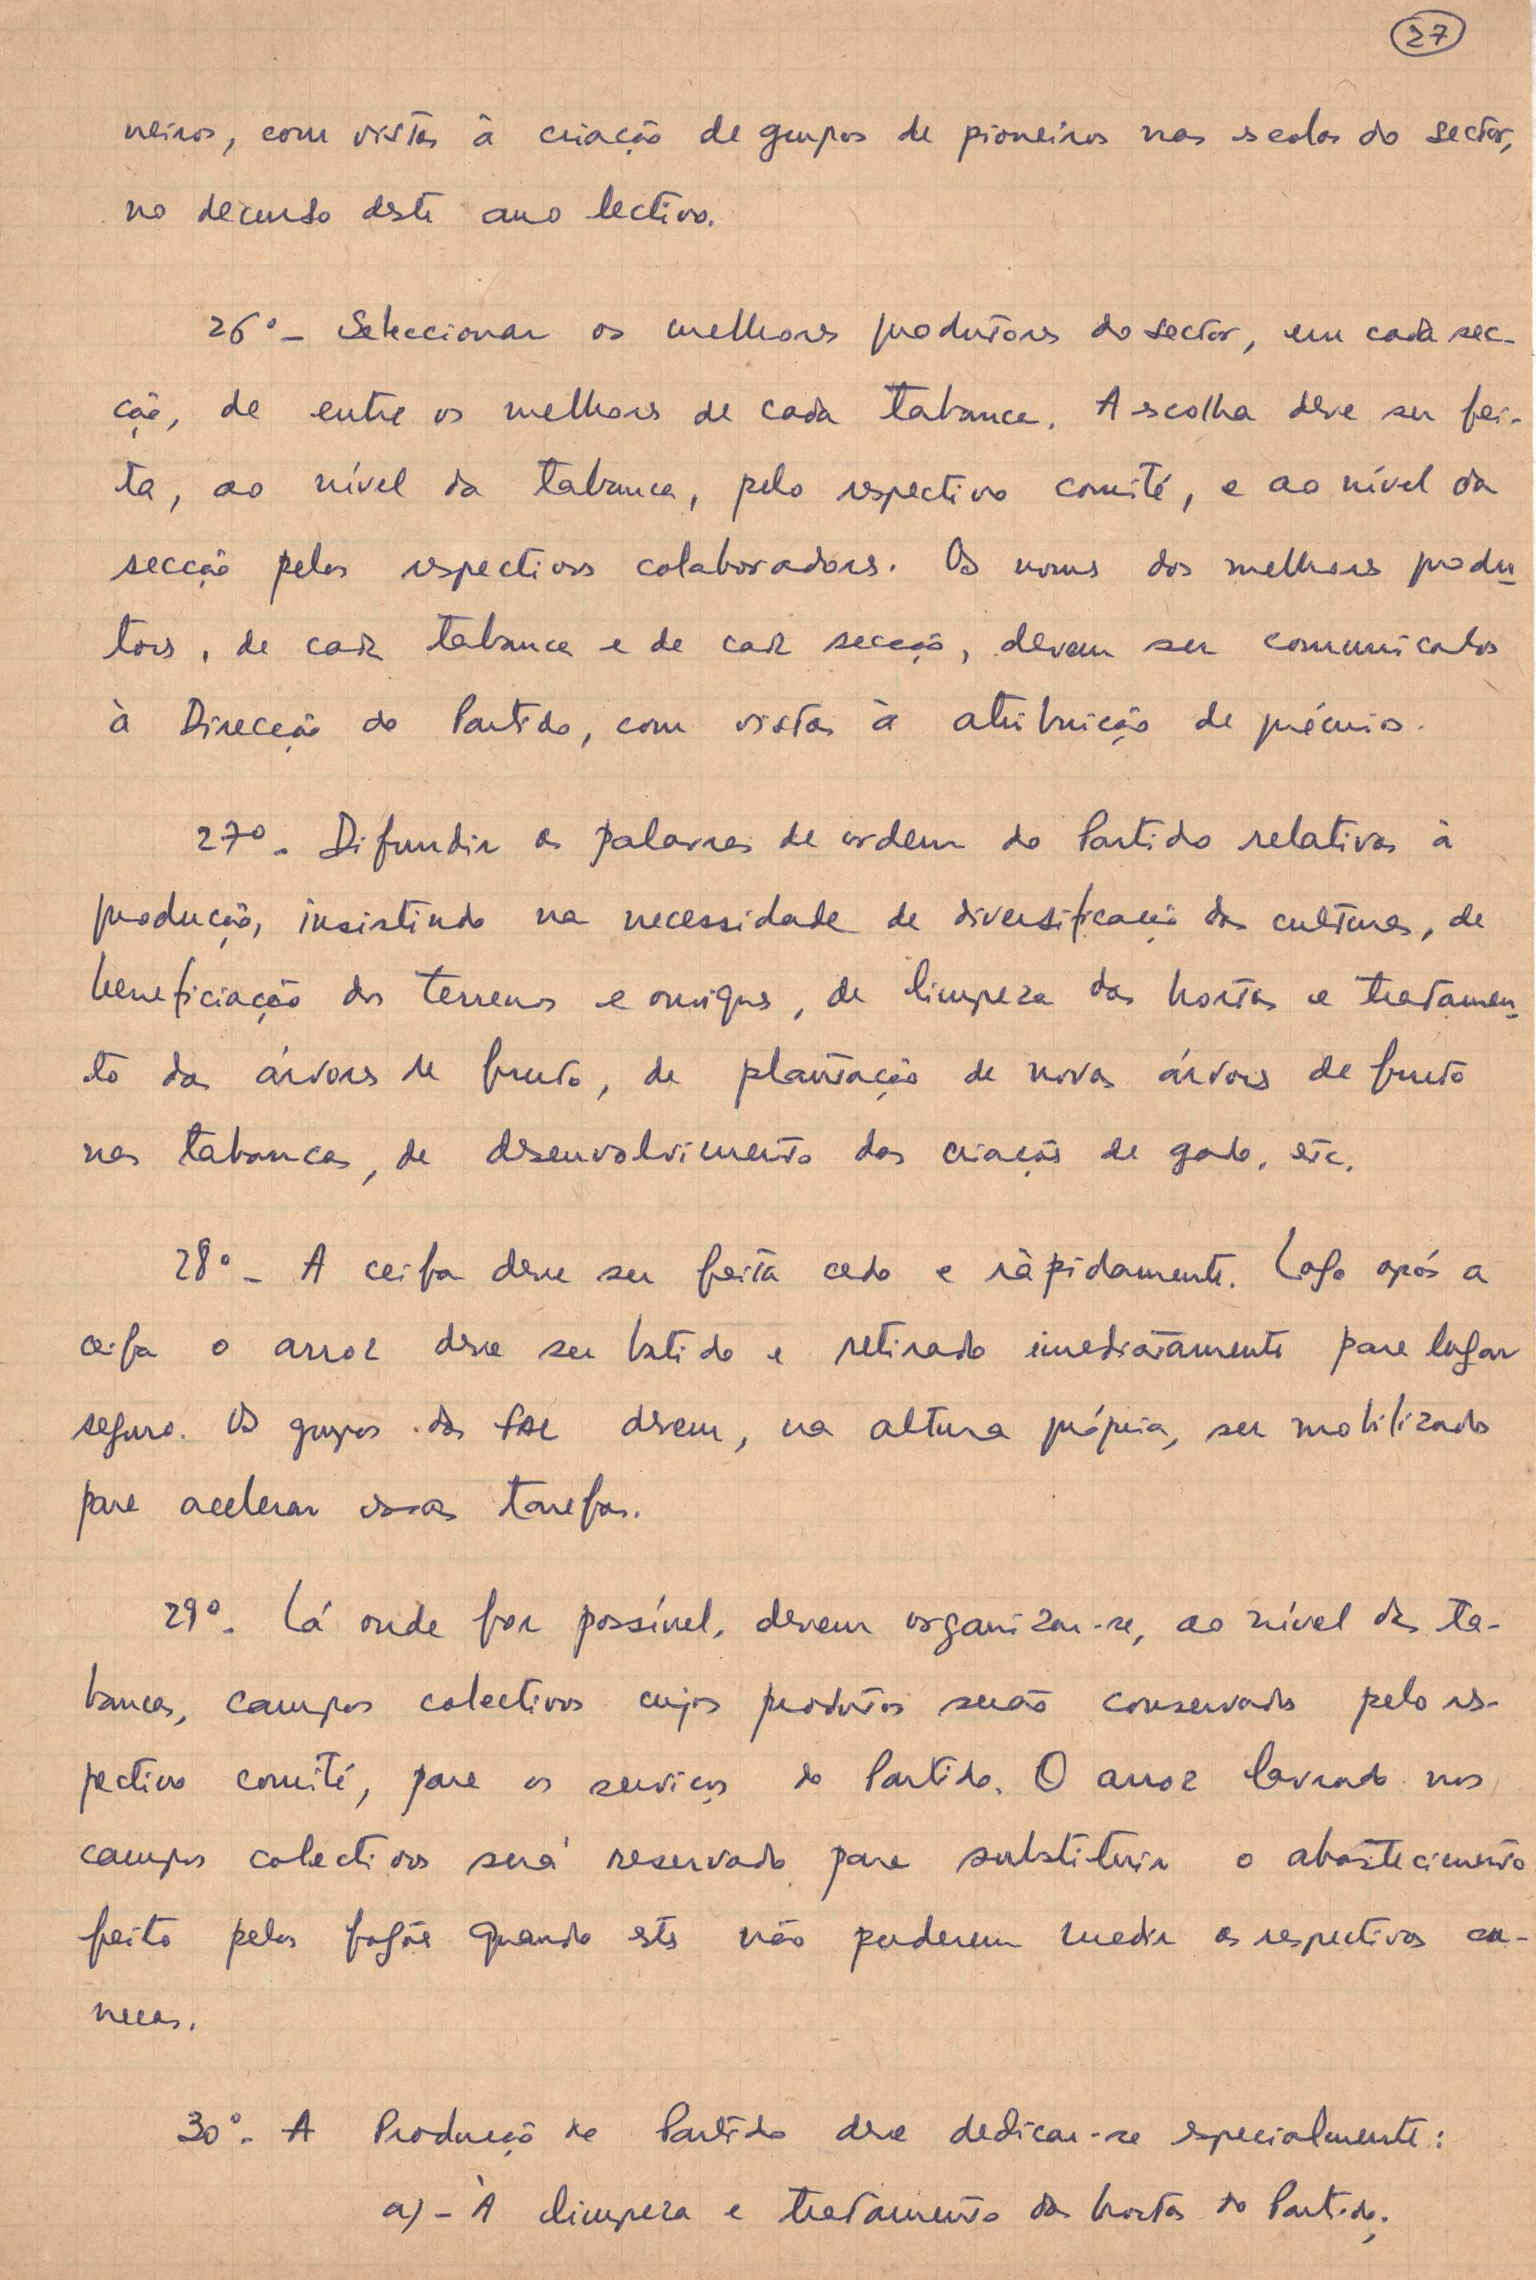 27
neiros, com vistas à criação de grupos de pioneiros nas escolas do sector,
no decurso deste ano lectivo.
26º - Seleccionar os melhores produtores do sector, em cada sec-
ção, de entre os melhores de cada tabanca. A escolha deve ser fei-
ta, ao nível da tabanca, pelo respectivo comité, e ao nível da
secção pelos respectivos colaboradores. Os nomes dos melhores produ-
tores, de cada tabanca e de cada secção, devem ser comunicados
à Direcção do Partido, com vistas à atribuição de prémios.
27º - Difundir as palavras de ordem do Partido relativas à
produção, insistindo na necessidade de diversificação das culturas, de
beneficiação dos terrenos e ouriques, de limpeza das hortas e tratamen-
to das árvores de fruto, de plantação de novas árvores de fruto
nas tabancas, de desenvolvimento das criações de gado, etc.
28º - A ceifa deve ser feita cedo e ràpidamente. Logo após a
ceifa o arroz deve ser batido e retirado imediatamente para lugar
seguro. Os grupos das FAL devem, na altura própria, ser mobilizados
para acelerar essas tarefas.
29º - Lá onde for possível, devem organizar-se, ao nível das ta-
bancas, campos colectivos cujos produtos serão conservados pelo res-
pectivo comité, para os serviços do Partido. O arroz lavrado nos
campos colectivos será reservado para substituir o abastecimento
feito pelos fogões quando estes não puderem medir as respectivas ca-
necas.
30º - A Produção do Partido deve dedicar-se especialmente:
a) - À limpeza e tratamento das hortas do Partido;